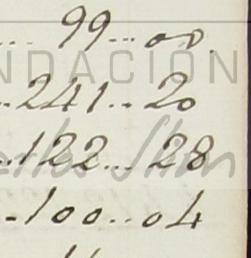 ... 99...00.
NDACIÓN
..241..20
..122...28
Carlos Slim
..100..04